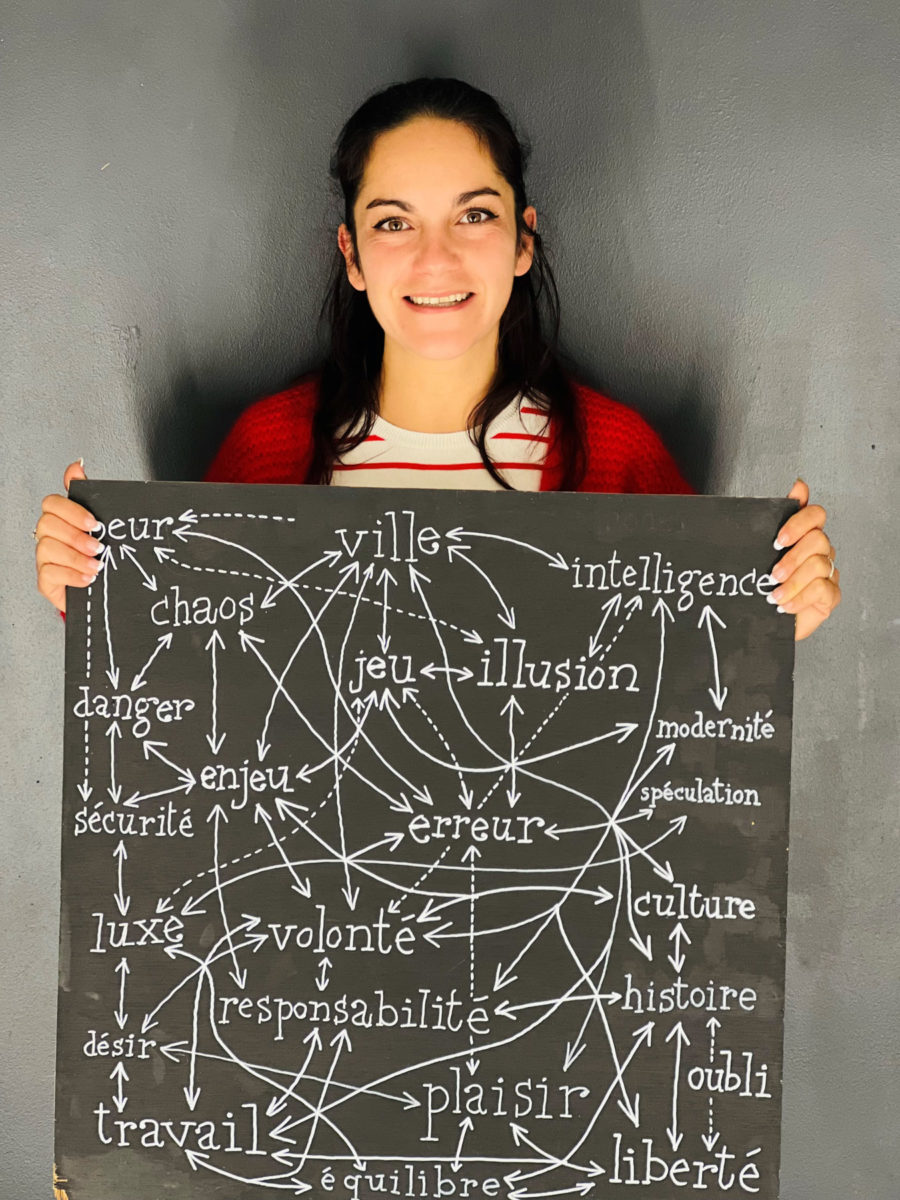 peur
ville
intelligence
chaos
jeu
illusion
danger
modernité
enjeu
spéculation
sécurité
erreur
luxe
volonté
culture
responsabilité
histoire
désir
oubli
plaisir
travail
liberté
équilibre